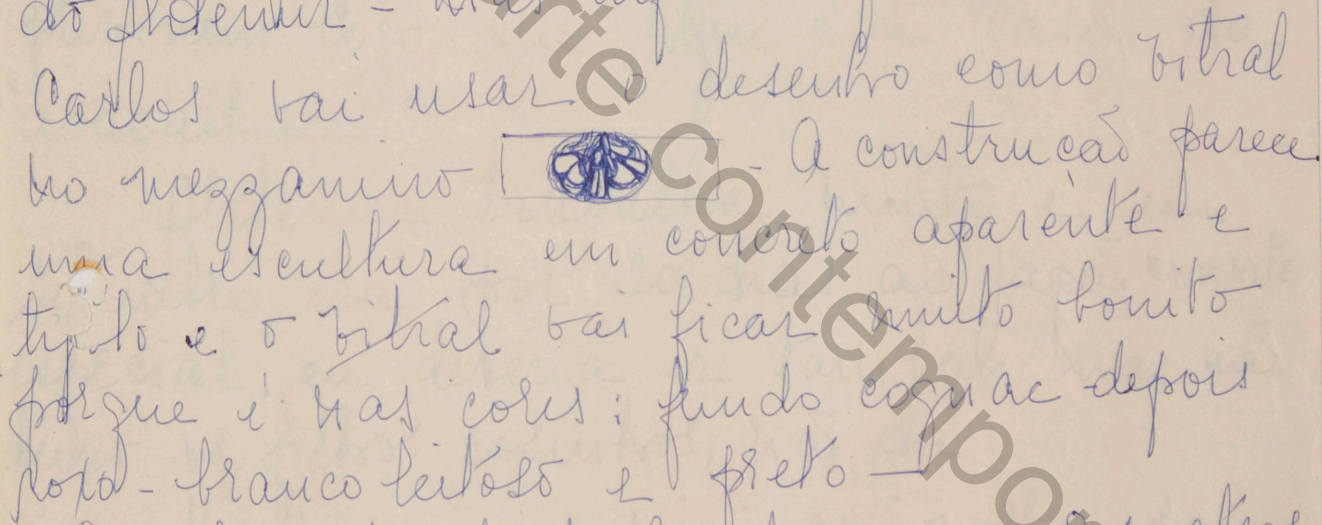 Carlos vai usar o desenho como vitral
no mezzanino - A construção parece
uma escultura em concreto aparente e
tijolo e o vitral vai ficar muito bonito
porque é nas cores: fundo cognac depois
roxo - branco leitoso e preto -
arte contemporâ